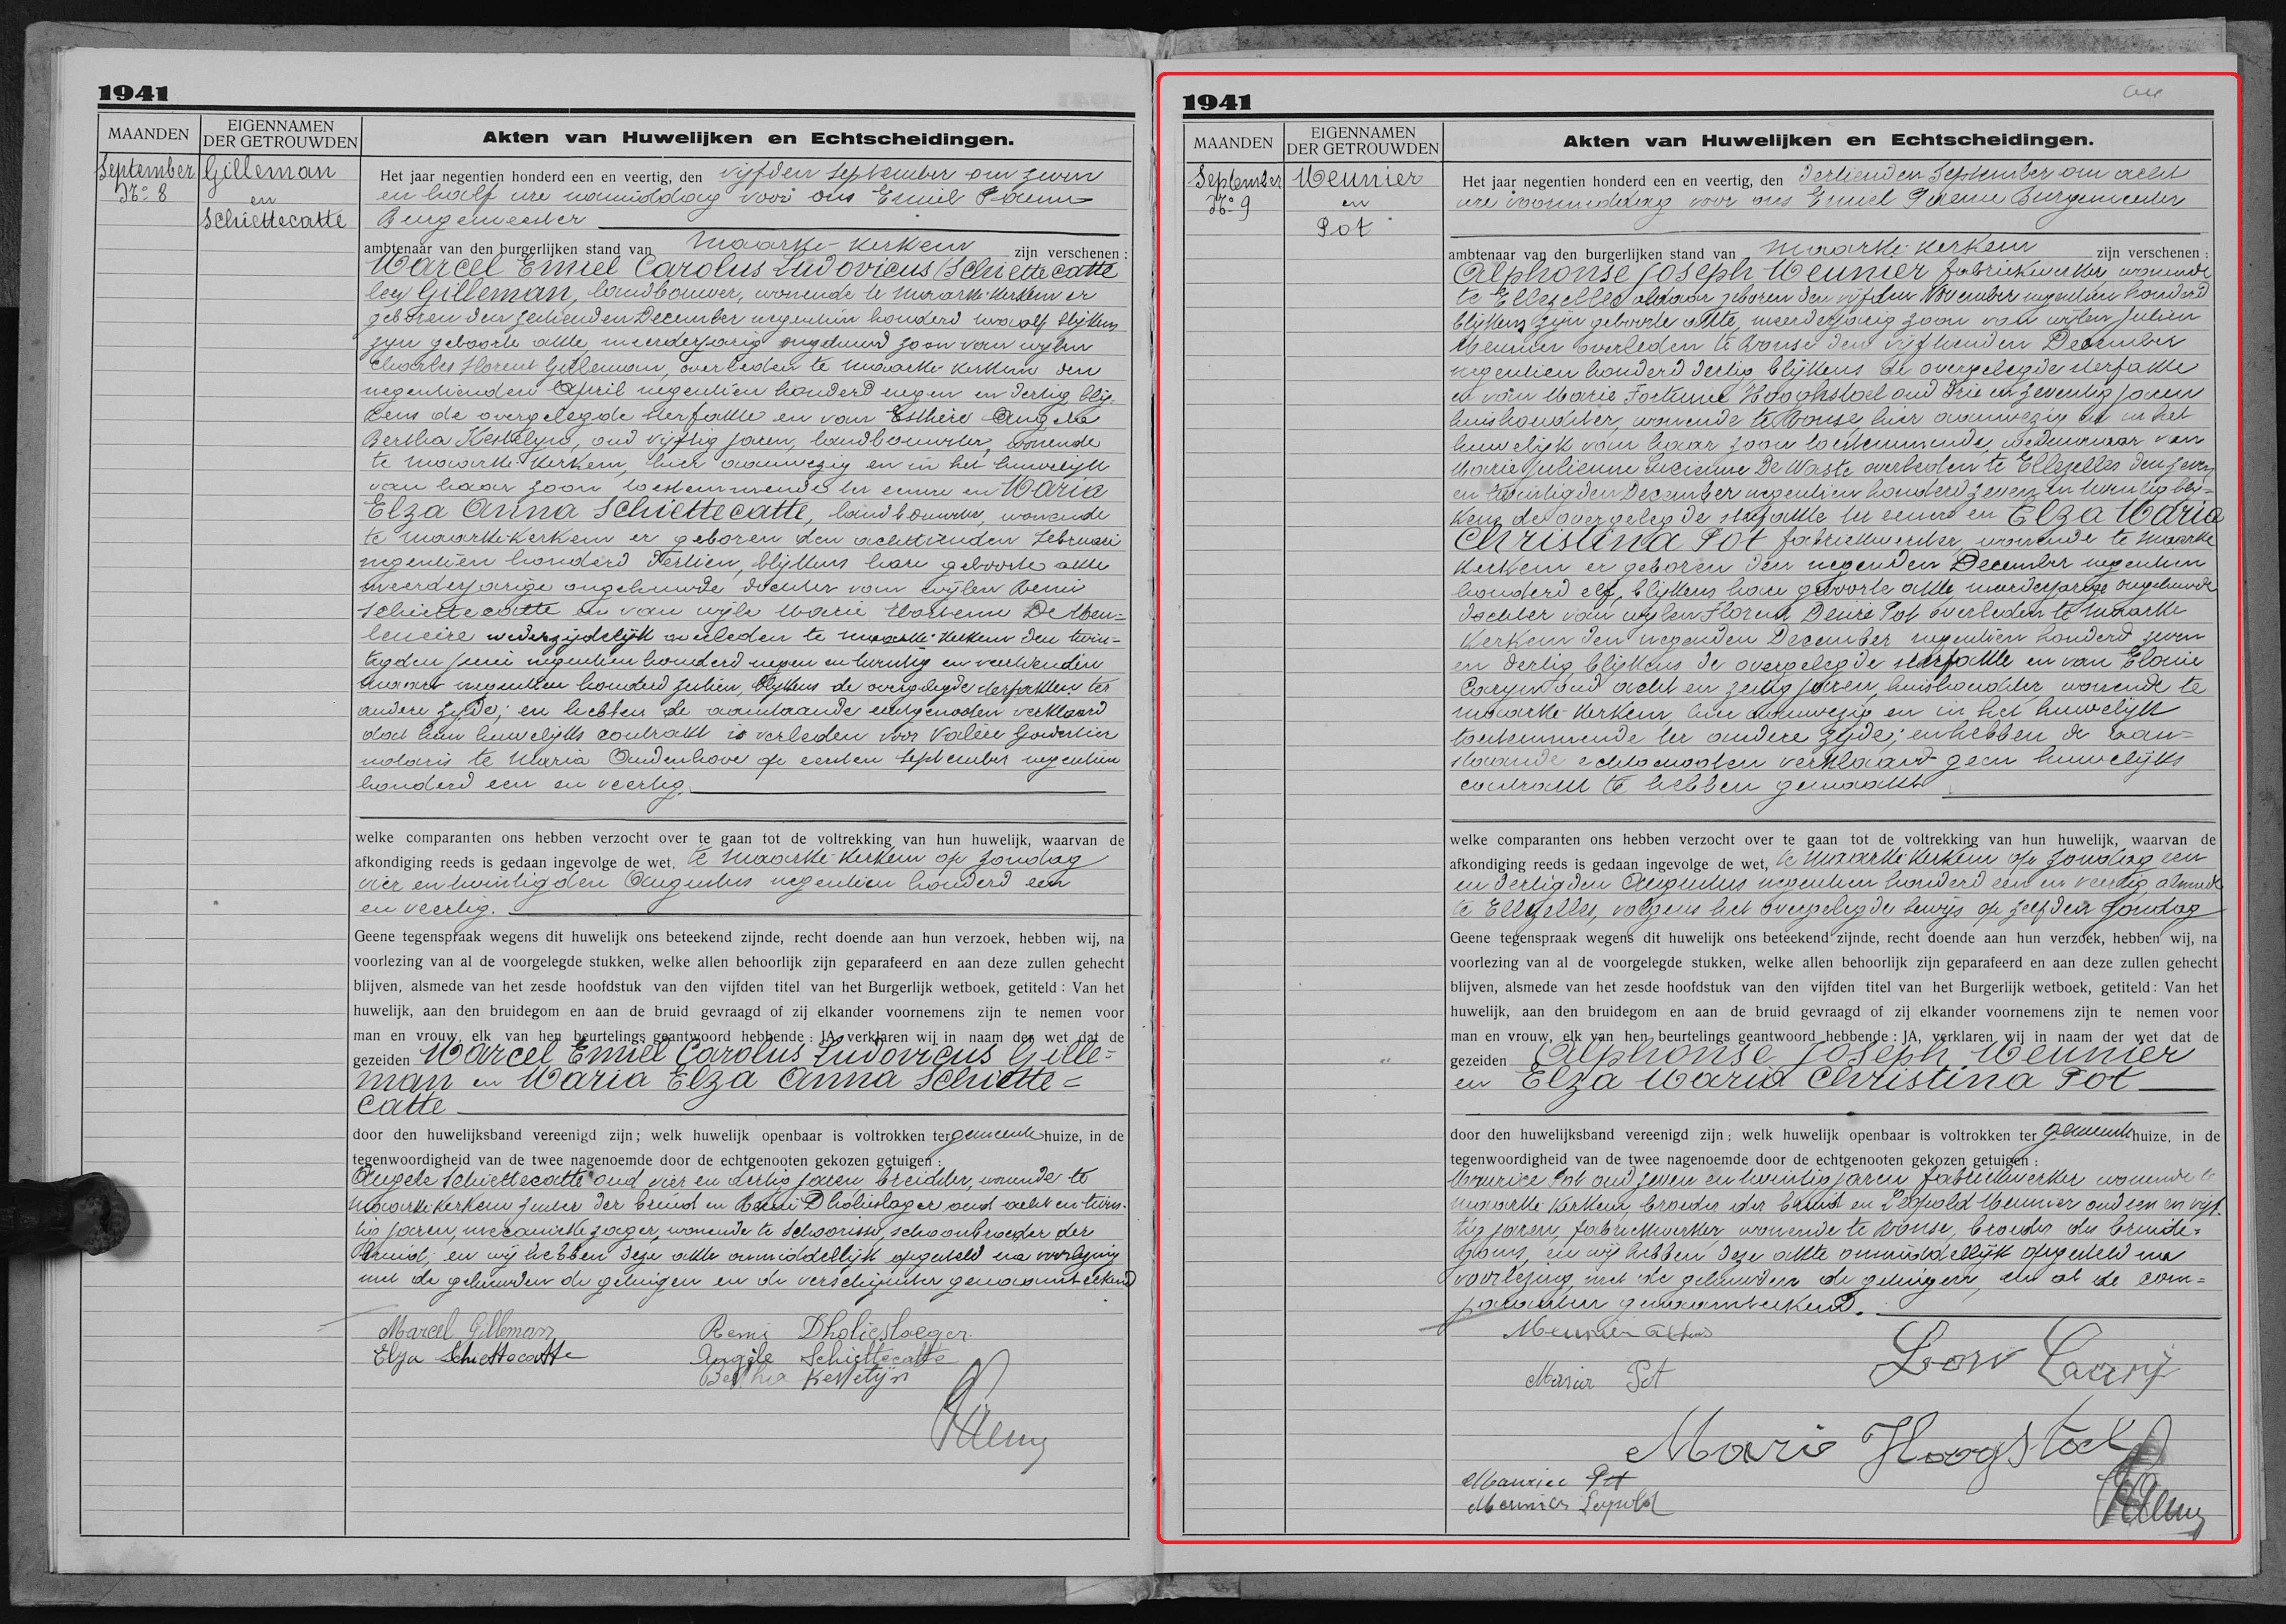 1941
MAANDEN
EIGENNAMEN
DER GETROUWDEN
Akten van Huwelijken en Echtscheidingen.
September
No 8
Gilleman
en
Schiettecatte
Het jaar negentien honderd een en veertig, den vijfden September om zeven
en half ure namiddag voor ons Emiel
Burgemeester
ambtenaar van den burgerlijken stand van Maarke-Kerkem zijn verschenen :
Marcel Emiel Carolus Ludovicus Schiettecatte
Gilleman, landbouwer, wonende te Maarke-Kerkem er
geboren den zestienden December negentien honderd twaalf blijkens
zijn geboorte akte meerderjarig ongehuwd zoon van wijlen
Charles Florent Gilleman, overleden te Maarke-Kerkem den
negentienden April negentien honderd negen en dertig blij-
kens de overgelegde sterfakte en van Esthere Angela
Bertha Kestelyn, oud vijftig jaren, landbouwster, wonende
te Maarke-Kerkem, hier aanwezig en in het huwelijk
van haar zoon toestemmende ter eenre en Maria
Elza Anna Schiettecatte, landbouwster, wonende
te Maarke-Kerkem er geboren den achttienden Februari
negentien honderd dertien, blijkens hare geboorte akte
meerderjarige ongehuwde dochter van wijlen Remi
Schiettecatte en van wijle Marie De Meu-
leneire wederzijdelijk overleden te Maarke-Kerkem den twin-
tigden Juni negentien honderd negen en twintig en veertienden
maart negentien honderd zestien, blijkens de overgelegde sterfakten ter
andere zijde; en hebben de aanstaande echtgenooten verklaard
dat hun huwelijks contrakt is verleden voor Valère
notaris te Maria Oudenhove op eersten September negentien
honderd een en veertig.
welke comparanten ons hebben verzocht over te gaan tot de voltrekking van hun huwelijk, waarvan de
afkondiging reeds is gedaan ingevolge de wet, te Maarke-Kerkem op zondag
vier en twintigden Augustus negentien honderd een
en veertig.
Geene tegenspraak wegens dit huwelijk ons beteekend zijnde, recht doende aan hun verzoek, hebben wij, na
voorlezing van al de voorgelegde stukken, welke allen behoorlijk zijn geparafeerd en aan deze zullen gehecht
blijven, alsmede van het zesde hoofdstuk van den vijfden titel van het Burgerlijk wetboek, getiteld : Van het
huwelijk, aan den bruidegom en aan de bruid gevraagd of zij elkander voornemens zijn te nemen voor
man en vrouw, elk van hen beurtelings geantwoord hebbende : JA, verklaren wij in naam der wet dat de
gezeiden Marcel Emiel Carolus Ludovicus Gille-
man en Maria Elza Anna Schiette-
catte
door den huwelijksband vereenigd zijn ; welk huwelijk openbaar is voltrokken ter gemeentehuize, in de
tegenwoordigheid van de twee nagenoemde door de echtgenooten gekozen getuigen :
Angele Schiettecatte oud vier en dertig jaren breidster, wonende te
Maarke-Kerkem zuster der bruid en Remi Dholieslager oud acht en twin-
tig jaren, mecaniekzager, wonende te Schoorisse, schoonbroeder der
bruid; en wij hebben deze akte onmiddellijk opgesteld na voorlezing
met de gehuwden de getuigen en de verschijnster genaamteekend
Marcel Gilleman
Remi Dholieslaeger
Elza Schiettecatte
Angèle Schiettecatte
Bertha Kestelijn
1941
MAANDEN
EIGENNAMEN
DER GETROUWDEN
Akten van Huwelijken en Echtscheidingen.
September
No 9
Meunier
en
Pot
Het jaar negentien honderd een en veertig, den dertienden September om acht
ure voormiddag voor ons Emiel Burgemeester
ambtenaar van den burgerlijken stand van Maarke-Kerkem zijn verschenen :
Alphonse Joseph Meunier fabriekwerker, wonende
te Ellezelles aldaar geboren den vijfden November negentien honderd
blijkens zijn geboorte akte, meerderjarig zoon van wijlen Julien
Meunier overleden te Ronse den vijftienden December
negentien honderd dertig blijkens de overgelegde sterfakte
en van Marie Fortunée Hooghstoel oud drie en zeventig jaren
huishoudster, wonende te Ronse hier aanwezig en in het
huwelijk van haar zoon toestemmende, weduwnaar van
Marie Julienne Lucienne De Waste overleden te Ellezelles den zeven
en twintigden December negentien honderd zeven en twintig blij-
kens de overgelegde sterfakte ter eenre en Elza Maria
Christina Pot fabriekwerkster, wonende te Maarke
Kerkem er geboren den negenden December negentien
honderd elf, blijkens hare geboorte akte, meerderjarige ongehuwde
dochter van wijlen Florent Denis Pot overleden te Maarke
Kerkem den negenden December negentien honderd zeven
en dertig blijkens de overgelegde sterfakte en van Elonie
Caryn oud acht en zestig jaren, huishoudster, wonende te
Maarke-Kerkem, hier aanwezig en in het huwelijk
toestemmende ter andere zijde; en hebben de aan-
staande echtgenooten verklaard geen huwelijks
contrakt te hebben gemaakt
welke comparanten ons hebben verzocht over te gaan tot de voltrekking van hun huwelijk, waarvan de
afkondiging reeds is gedaan ingevolge de wet, te Maarke-Kerkem op zondag een
en dertigden Augustus negentien honderd een en veertig alsmede
te Ellezelles, volgens het overgelegde bewijs op zelfden zondag
Geene tegenspraak wegens dit huwelijk ons beteekend zijnde, recht doende aan hun verzoek, hebben wij, na
voorlezing van al de voorgelegde stukken, welke allen behoorlijk zijn geparafeerd en aan deze zullen gehecht
blijven, alsmede van het zesde hoofdstuk van den vijfden titel van het Burgerlijk wetboek, getiteld : Van het
huwelijk, aan den bruidegom en aan de bruid gevraagd of zij elkander voornemens zijn te nemen voor
man en vrouw, elk van hen beurtelings geantwoord hebbende : JA, verklaren wij in naam der wet dat de
gezeiden Alphonse Joseph Meunier
en Elza Maria Christina Pot
door den huwelijksband vereenigd zijn ; welk huwelijk openbaar is voltrokken ter gemeentehuize, in de
tegenwoordigheid van de twee nagenoemde door de echtgenooten gekozen getuigen :
Maurice Pot oud zeven en twintig jaren fabriekwerker wonende te
Maarke-Kerkem, broeder der bruid en Léopold Meunier oud een en vijf-
tig jaren, fabriekwerker wonende te Ronse, broeder des bruide-
goms, en wij hebben deze akte onmiddellijk opgesteld na
voorlezing met de gehuwden de getuigen, en al de com-
paranten genaamteekend.
Meunier
Pot
Marie Hoogstoel
Maurice Pot
Meunier Leopold